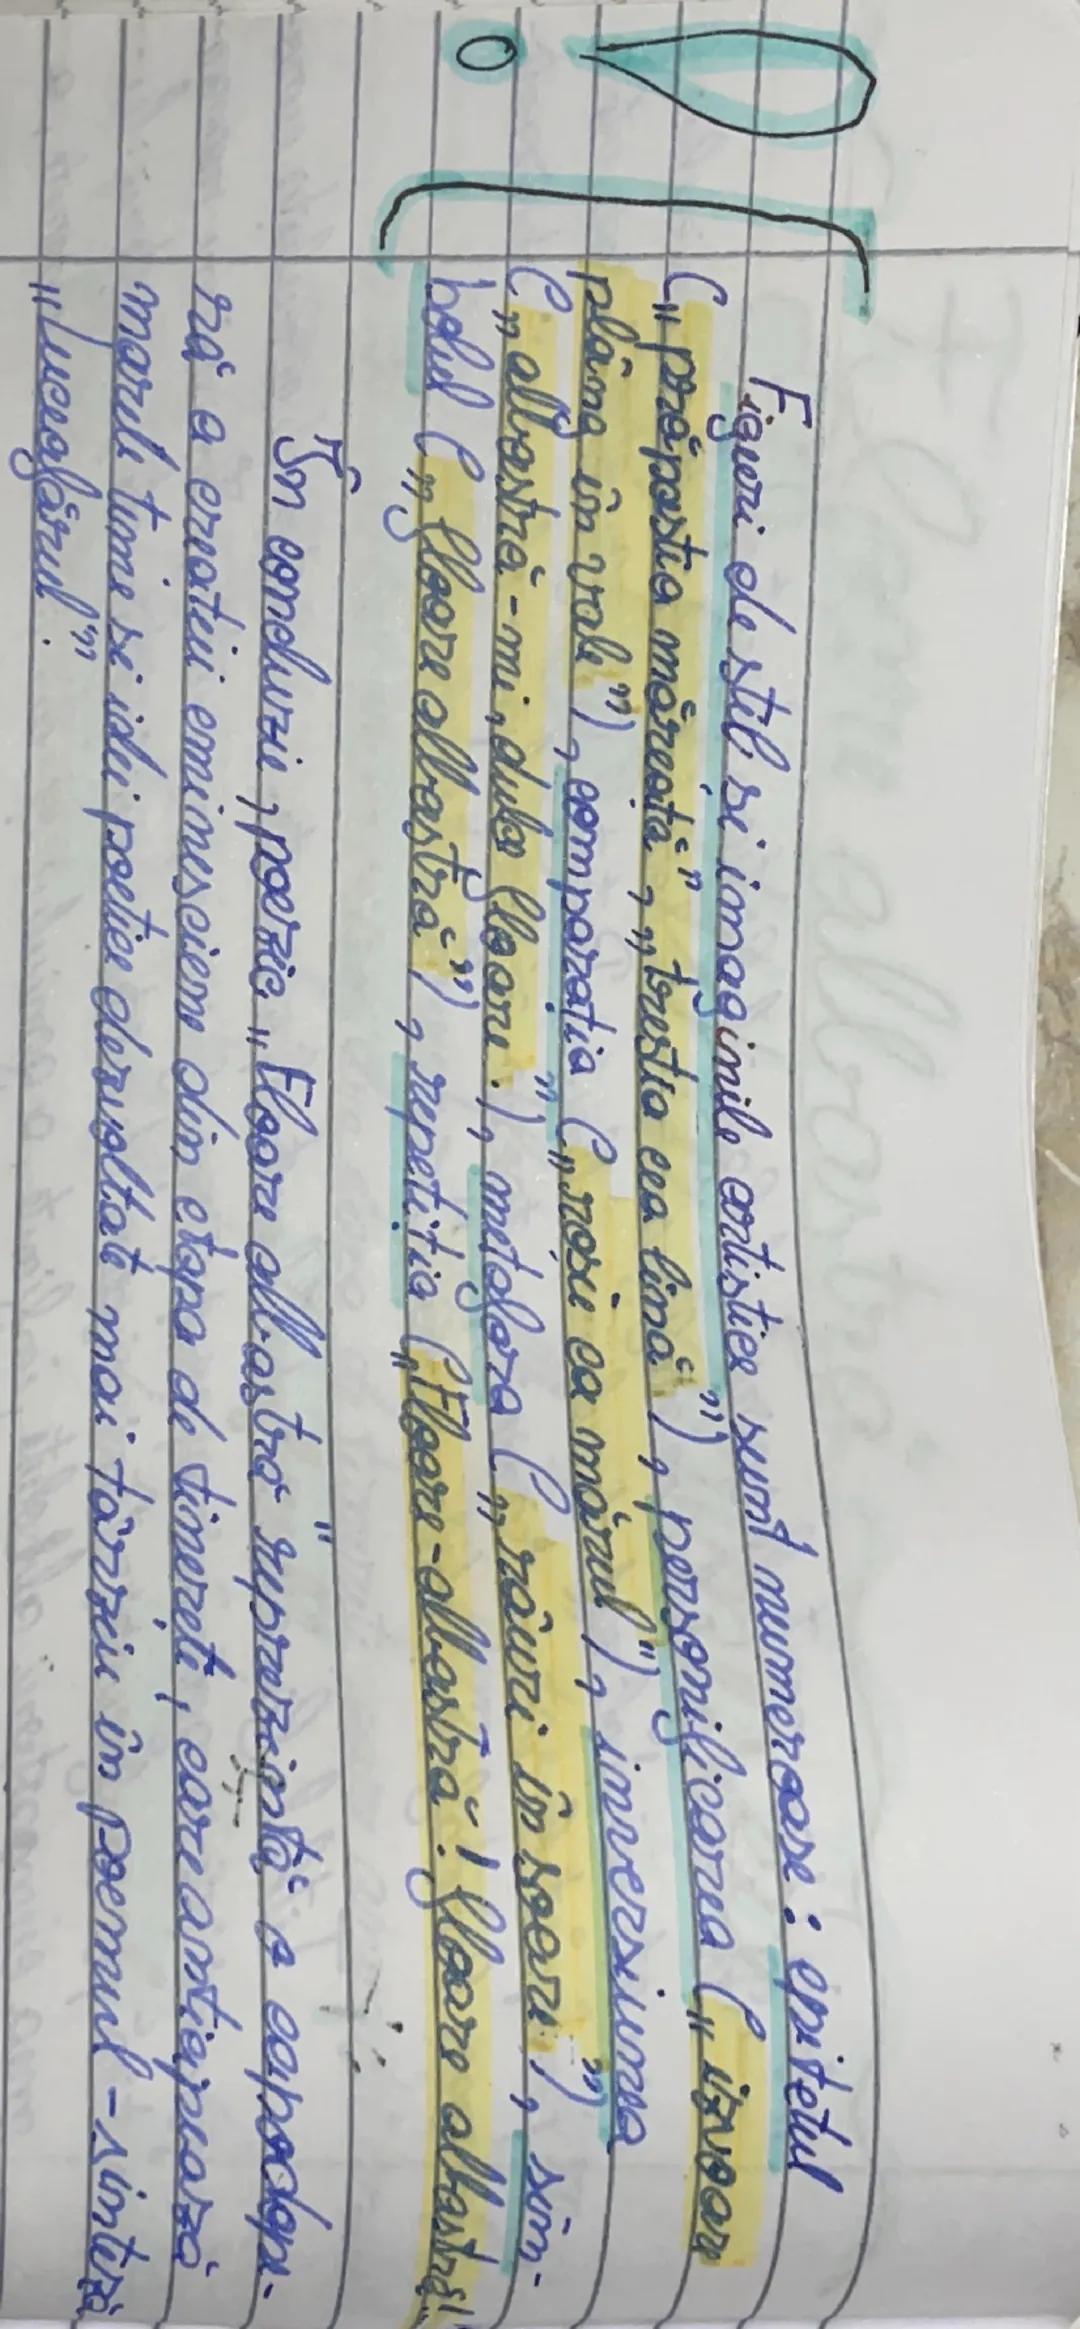 Figuri de stil și imaginile artistice sunt numeroase: epitetul
(„prăpastia măreață”, „trestia cea lină”), personificarea („izvoare
plâng în vale”), comparația („roșie ca mărul”), inversiunea
(„albastră-mi, dulce floare.”), metafora („râuri în soare”), sim-
bolul („floare albastră”), repetiția („Floare-albastră! floare albastră!”
În concluzie, poezia „Floare albastră” reprezintă o capodope-
ră a creației eminesciene din etapa de tinereți, care anticipează
marile teme și idei poetice dezvoltate mai târziu în poemul-sinteză
„Luceafărul”.